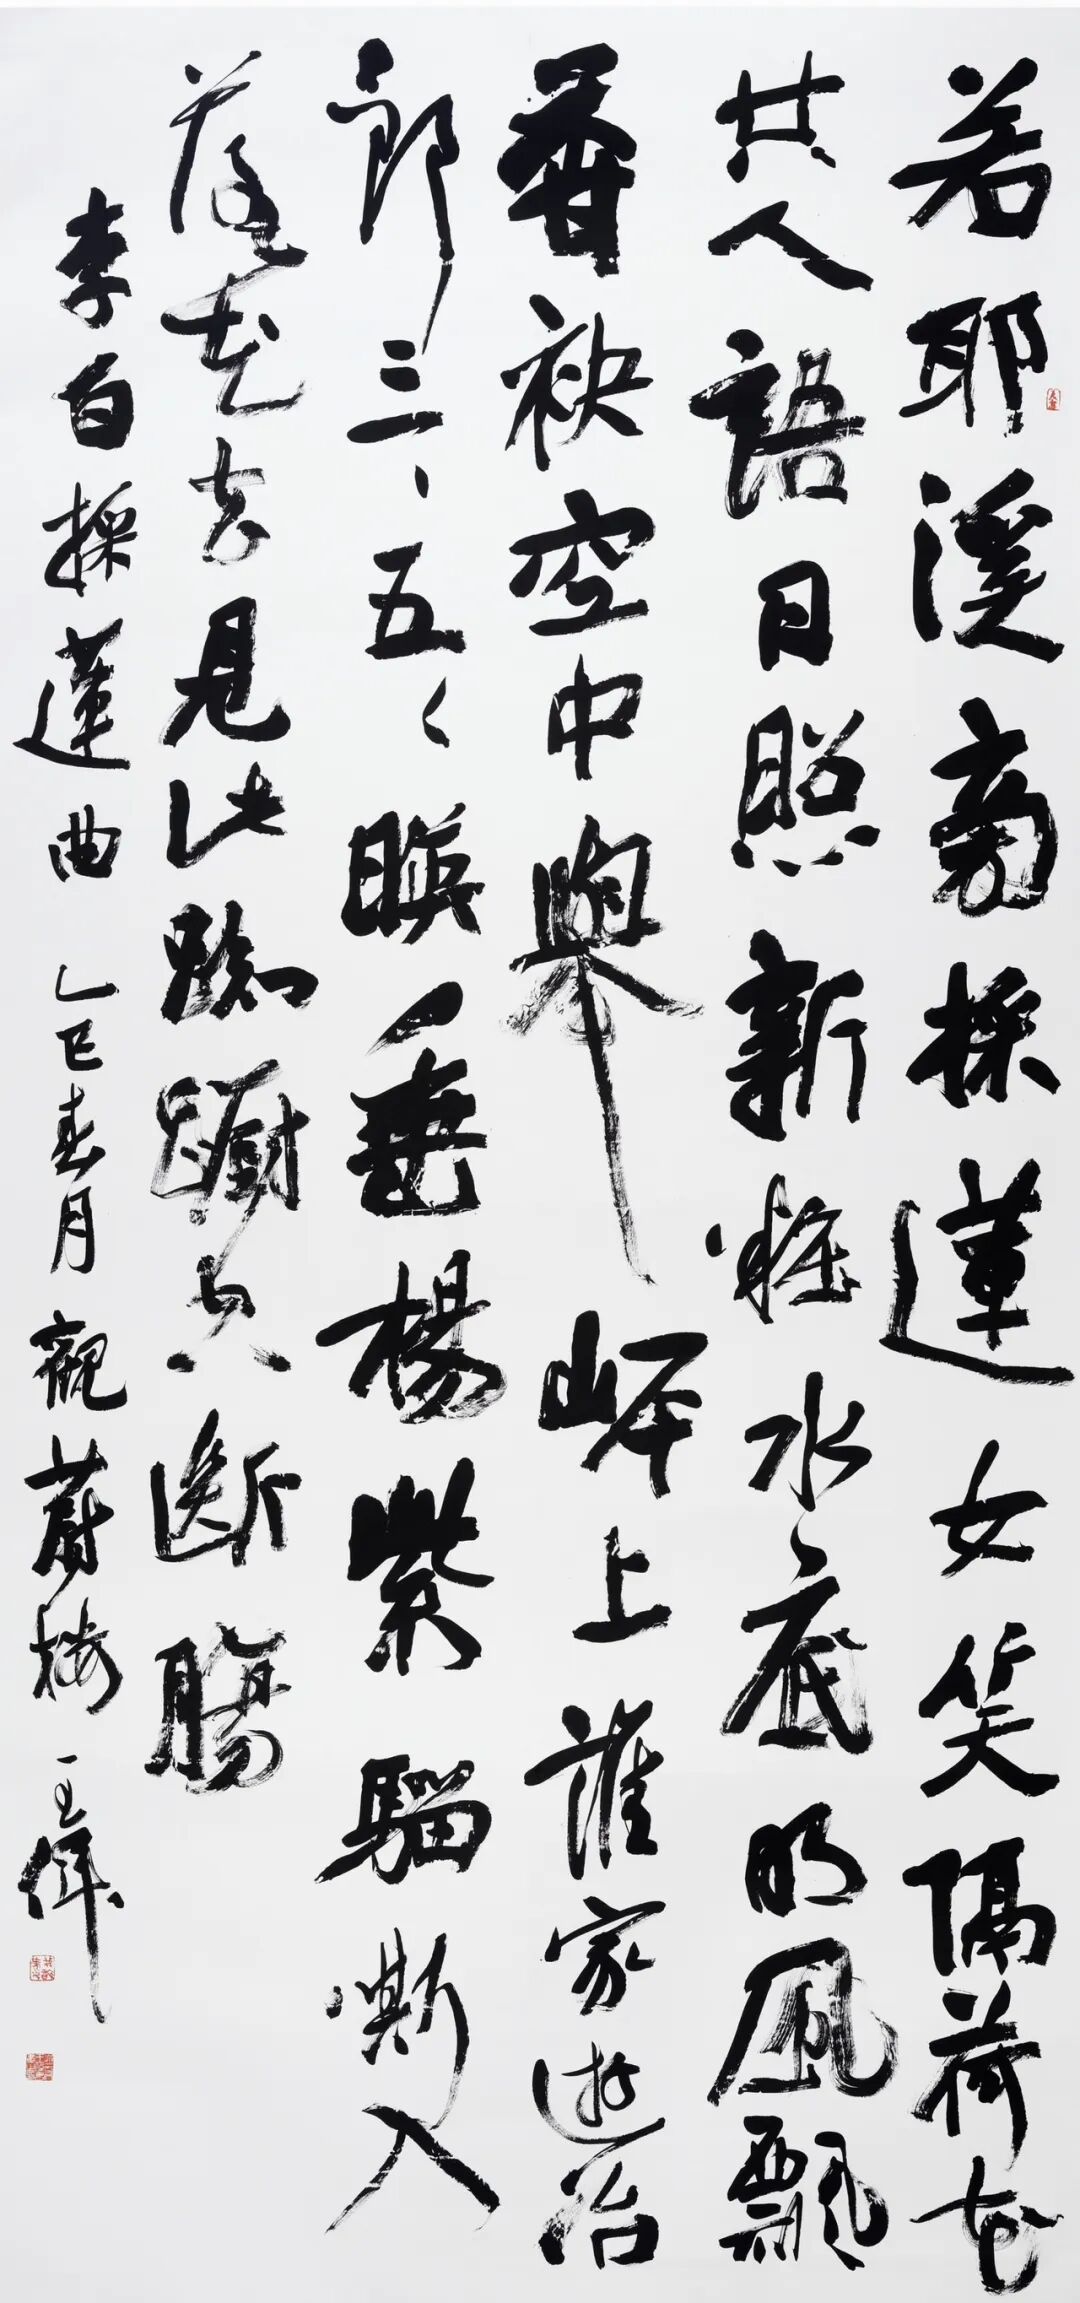 若耶溪旁採蓮女笑隔荷花
共人語日照新妝水底明風飄
香袂空中舉岸上誰家遊冶
郎三三五五映垂楊紫騮嘶入
落花去見此踟躕空斷腸
李白採蓮曲 乙巳春月 觀蔚樓 王偉